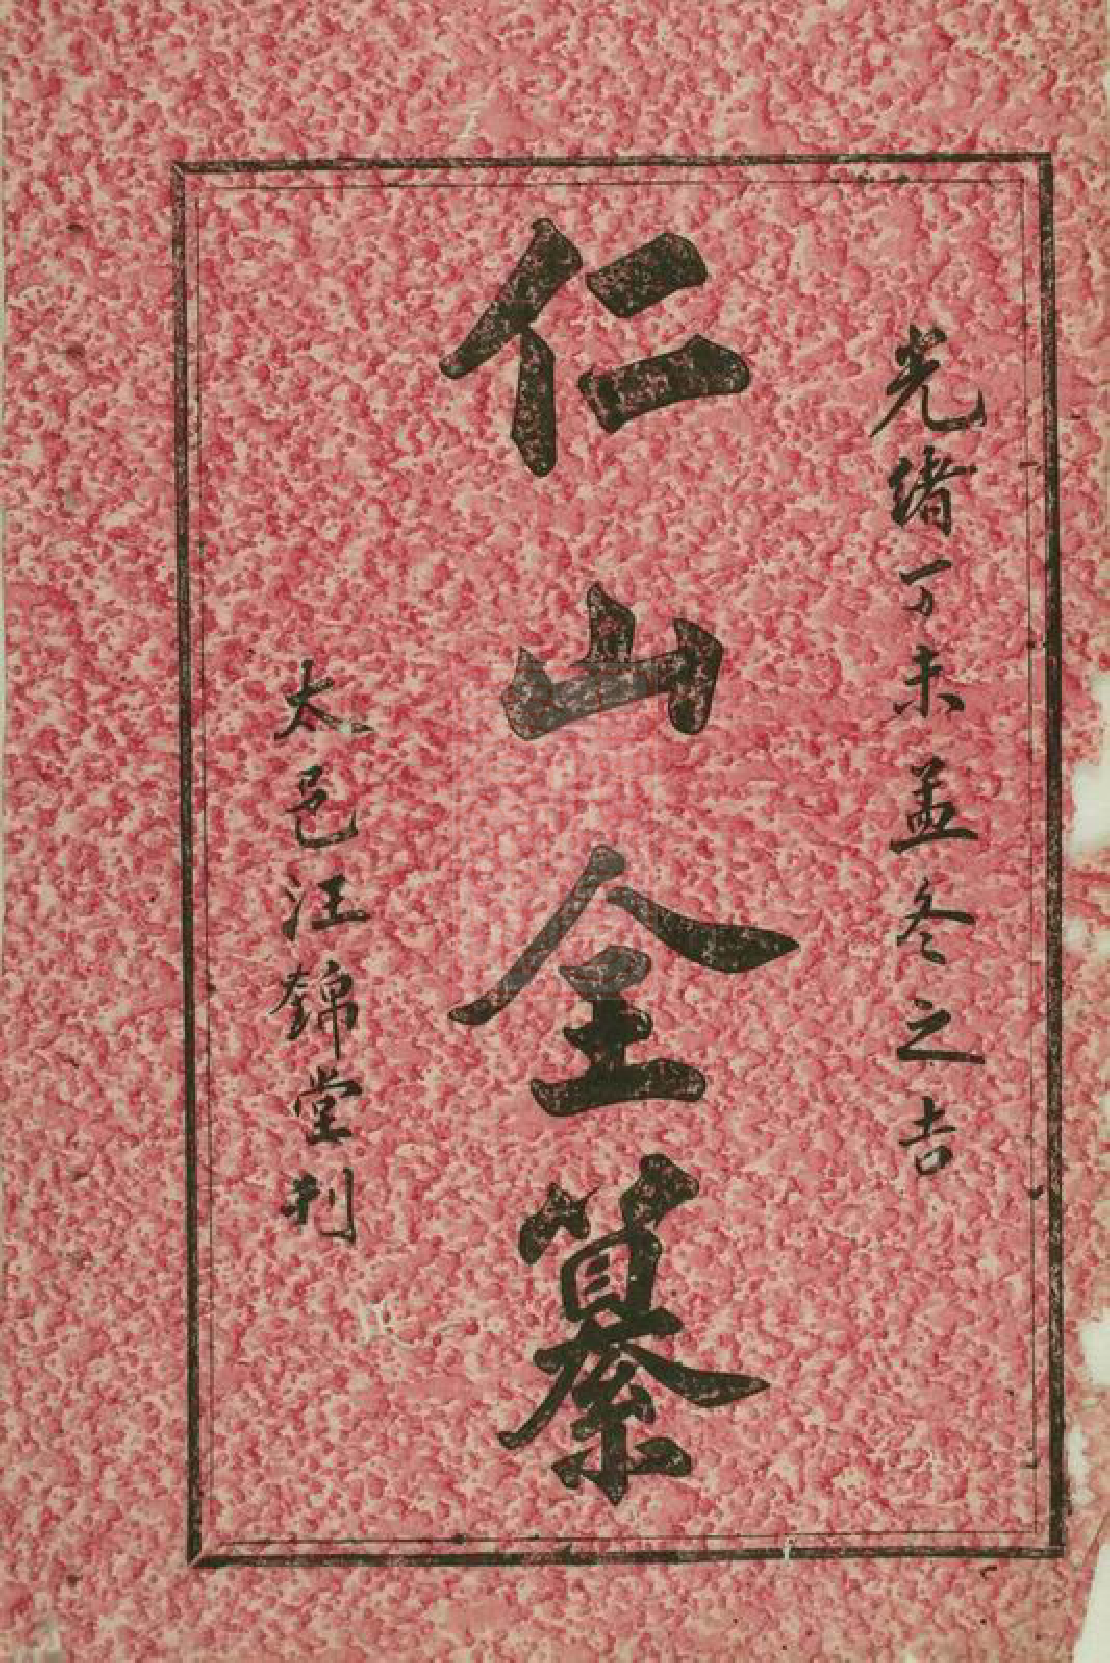 光緒丁未孟冬之吉
仁山全纂
太邑汪錦堂刋